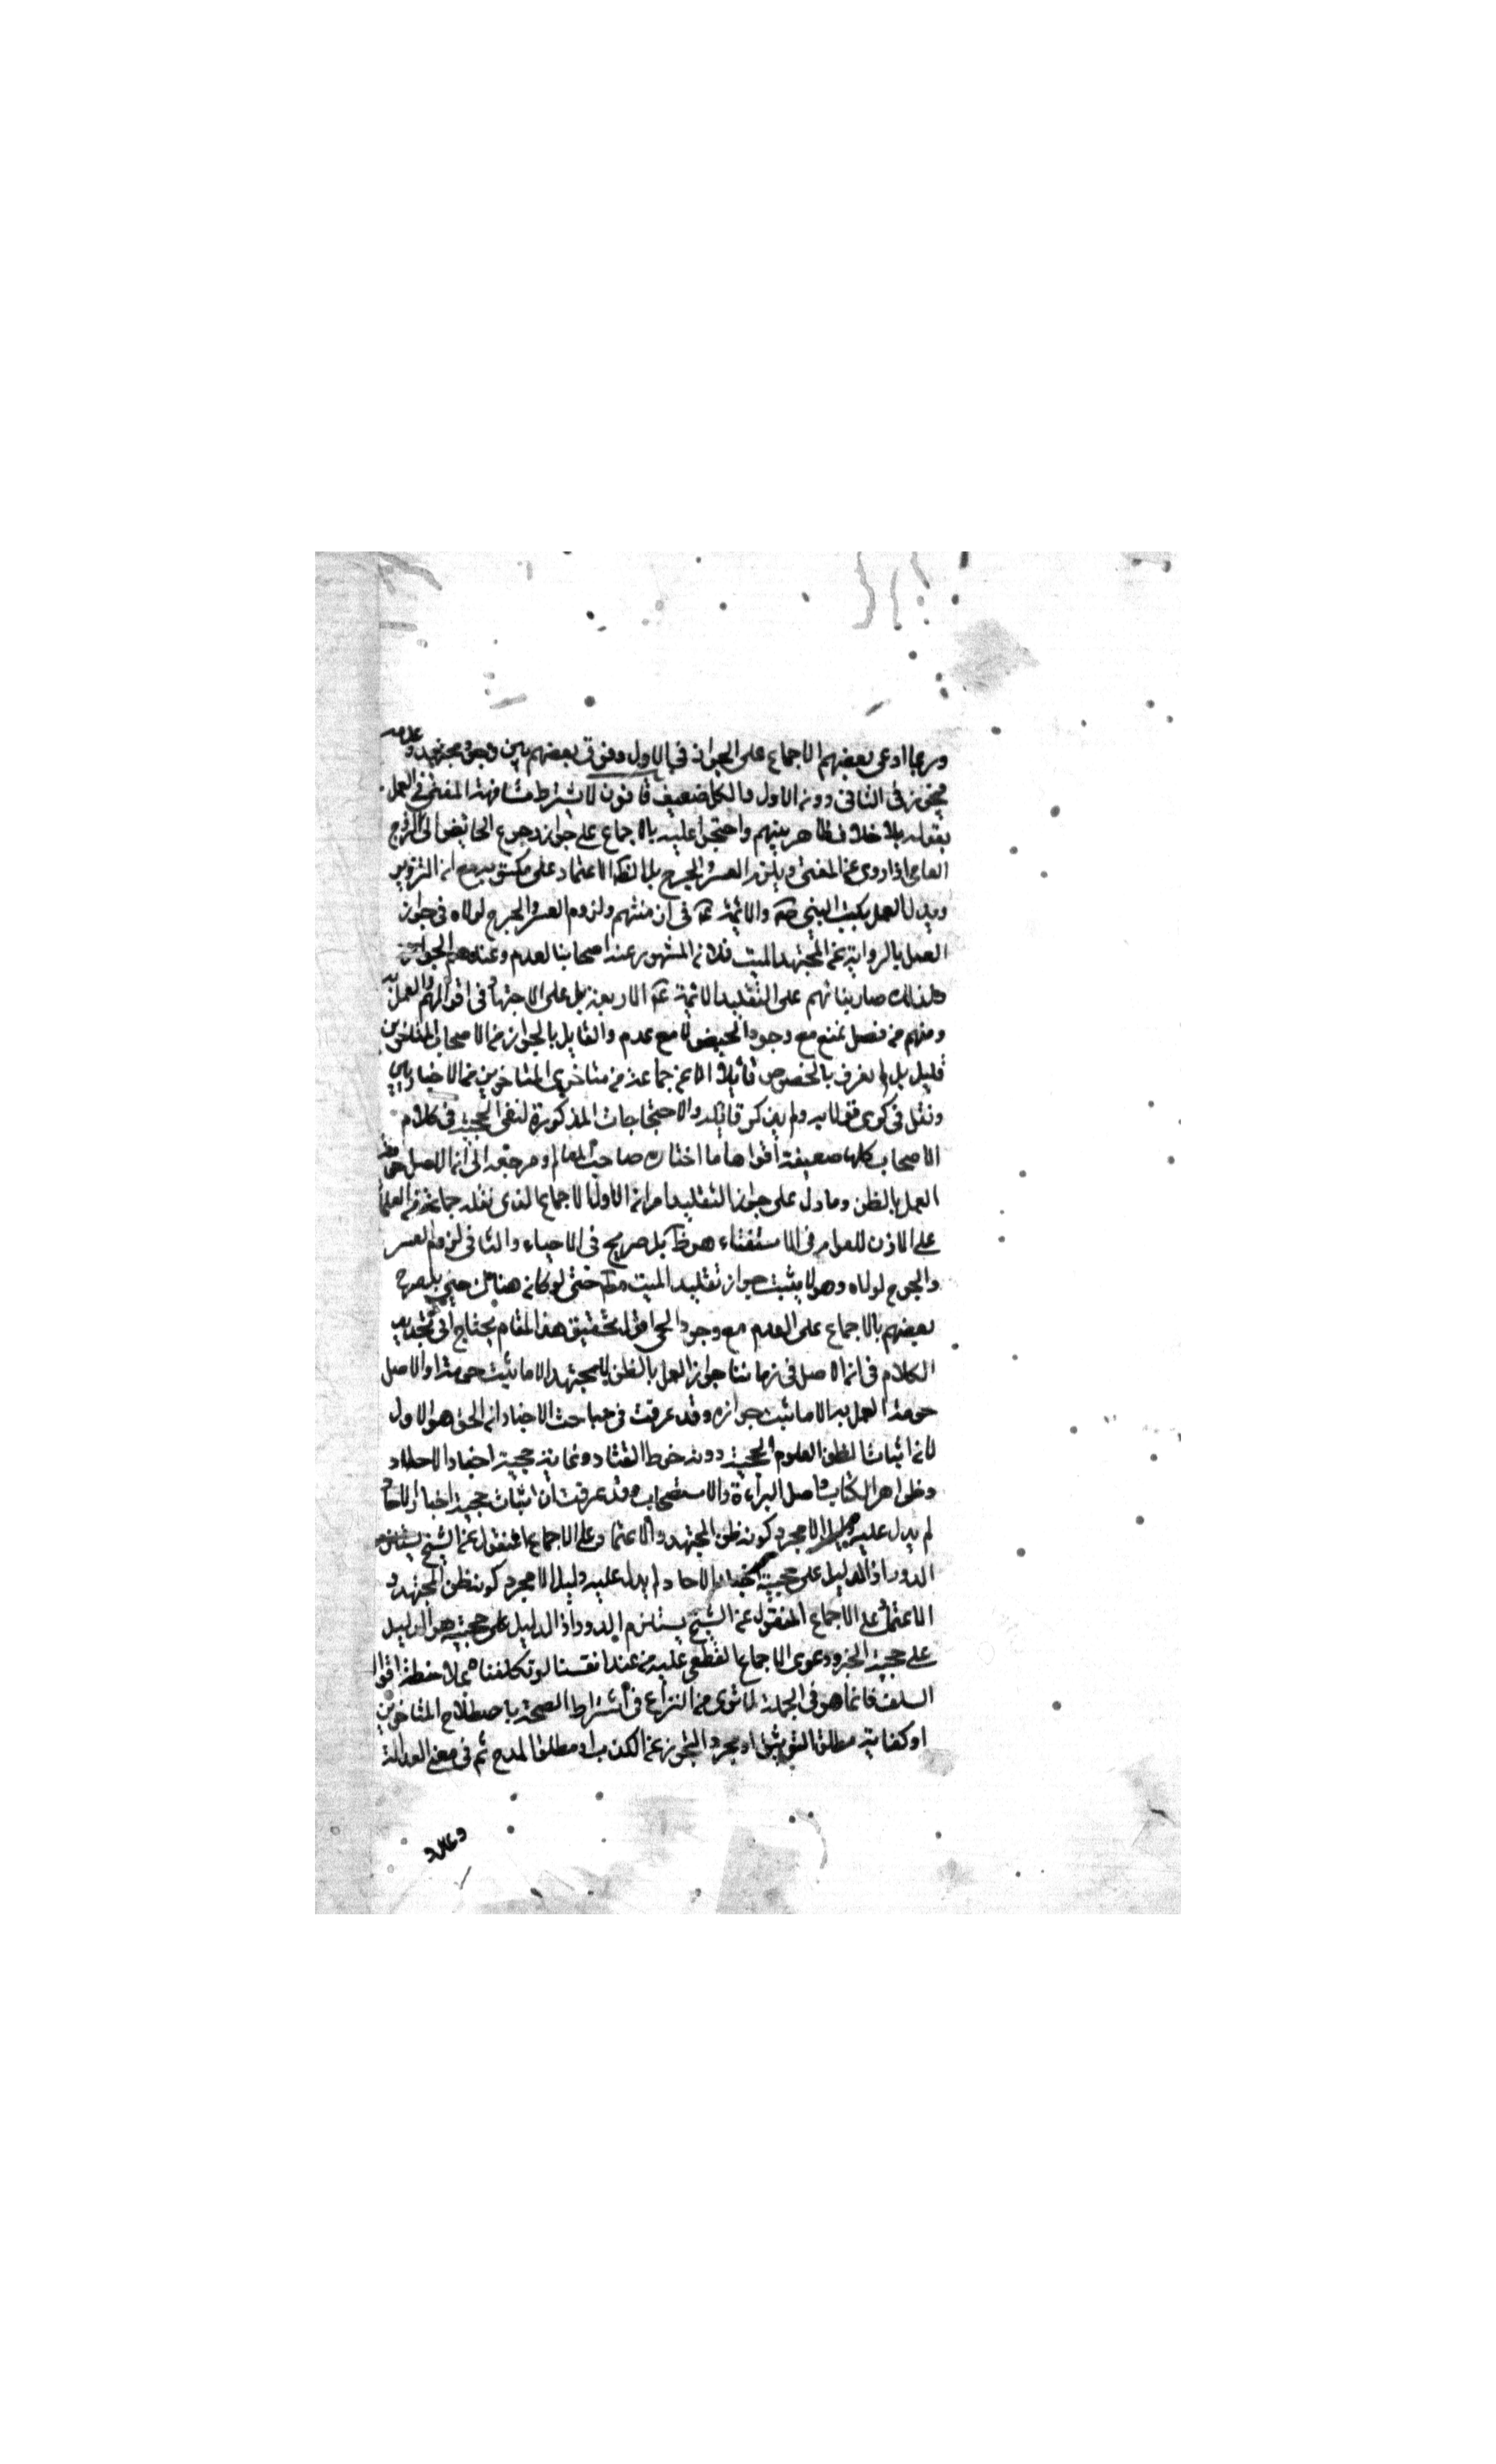 وربما ادعى بعضهم الاجماع على الجواز في الاول وفرق بعضهم بين وجود مجتهد وعدمه
فيجوز في الثاني دون الاول والكل ضعيف قانون لا يشترط مشافهة المفتي في العمل
بقوله بلا خلاف ظاهر بينهم واحتجوا عليه بالاجماع على جواز رجوع الحايض الى الزوج
العامي اذا روى عن المفتي ويلزم العسر والحرج بل الظ الاعتماد على مكتوبه مع امن التزوير
ويدل العمل بكتب النبي صم والائمة عم في ازمنتهم ولزوم العسر والحرج لولاه في جواز
العمل بالرواية عن المجتهد الميت فلان المشهور عند اصحابنا العدم وعند الجواز
ولذلك صار بناؤهم على التقليد الائمة الاربعة بل على الاجتهاد في اقوالهم والعمل به
ومنهم من فصل بمنع مع وجود الحي لا مع عدم والقايل بالجواز من الاصحاب المتاخرين
قليل بل لم نعرف بالخصوص قائلا الا عن جماعة من متاخري المتاخرين من الاخباريين
ونقل في كرى قولا به ولم يذكر قائله والاحتجاجات المذكورة لنفي الحجية في كلام
الاصحاب كلها ضعيفة اقواها ما اختاره صاحب المعالم ومرجعه الى ان الاصل حرمة
العمل بالظن وما دل على جواز التقليد امران الاول الاجماع الذي نقله جماعة من العلماء
على الاذن للعوام في الاستفتاء هو ظ بل صريح في الاحياء والثاني لزوم العسر
والحرج لولاه وهو لا يثبت جواز تقليد الميت مط حتى لو كان هناك حي بل صرح
بعضهم بالاجماع على العدم مع وجود الحي اقول تحقيق هذا المقام يحتاج الى تجديد
الكلام في ان الاصل في زماننا جواز العمل بالظن للمجتهد الا ما ثبت حرمته او الاصل
حرمة العمل به الا ما ثبت جوازه وقد عرفت في مباحث الاخبار ان الحق هو الاول
لان اثبات الظن المعلوم الحجية دونه خرط القتاد وغايته حجية اخبار الاحاد
وظواهر الكتاب واصل البراءة والاستصحاب وقد عرفت ان اثبات حجية اخبار الاحاد
لم يدل عليه دليل الا مجرد كونه ظن المجتهد والاعتماد على الاجماع المنقول عن الشيخ يستلزم
الدور اذ الدليل على حجية اخبار الاحاد لم يدل عليه دليل الا مجرد كونه ظن المجتهد و
الاعتماد على الاجماع المنقول عن الشيخ يستلزم الدور اذ الدليل على حجيته هو الدليل
على حجية الخبر ودعوى الاجماع القطعي عليه من عند انفسنا لو تكلفناه بملاحظة اقوال
السلف فانما هو في الجملة لما ترى من النزاع في اشتراط الصحة باصطلاح المتاخرين
او كفاية مطلق التوثيق او مجرد التحرز عن الكذب او مطلق المدح ثم في معنى العدالة